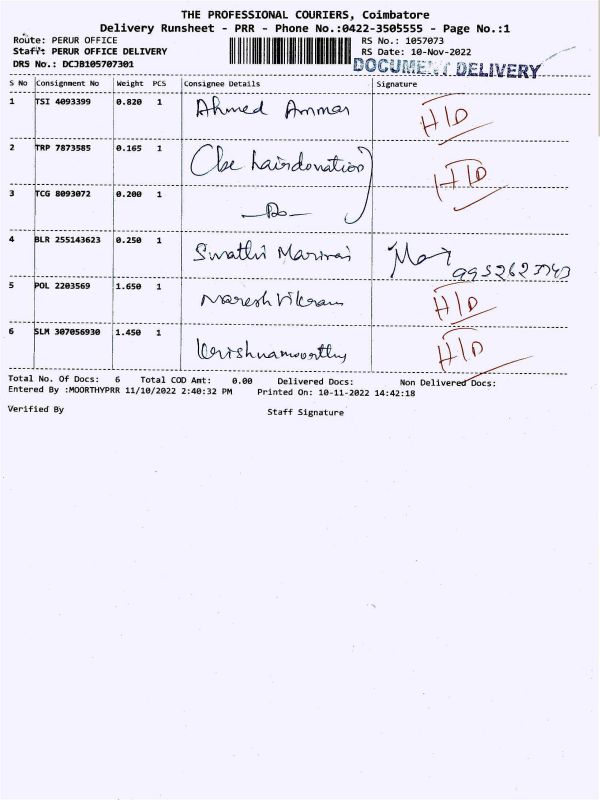 THE PROFESSIONAL COURIERS, Coimbatore
Delivery Runsheet - PRR - Phone No.:0422-3505555 - Page No.:1
Route: PERUR OFFICE RS No.: 1057073
Staff: PERUR OFFICE DELIVERY RS Date: 10-Nov-2022
DRS No.: DCJB105707301 DOCUMENT DELIVERY
S No Consignment No Weight PCS Consignee Details Signature
1 TSI 4093399 0.820 1 Ahmed Ammar H/D
2 TRP 7873585 0.165 1 Cbe hairdonation H/D
3 TCG 8093072 0.200 1 —Do—
4 BLR 255143623 0.250 1 Swathi 
5 POL 2203569 1.650 1 Naresh Vikram H/D
6 SLM 307056930 1.450 1 Krishnamoorthy H/D
Total No. Of Docs: 6 Total COD Amt: 0.00 Delivered Docs: Non Delivered Docs:
Entered By :MOORTHYPRR 11/10/2022 2:40:32 PM Printed On: 10-11-2022 14:42:18
Verified By Staff Signature